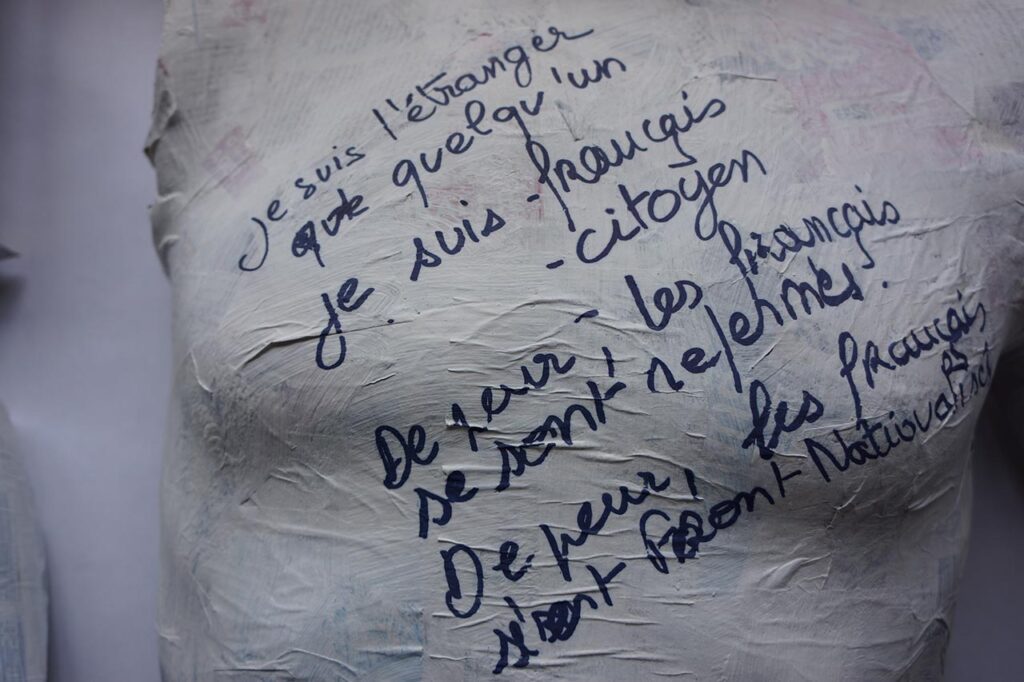 Je suis l'étranger
que quelqu'un
je suis - français
- citoyen
De peur, - les français
se sont refermés.
De peur, les français
s'ont Front-National